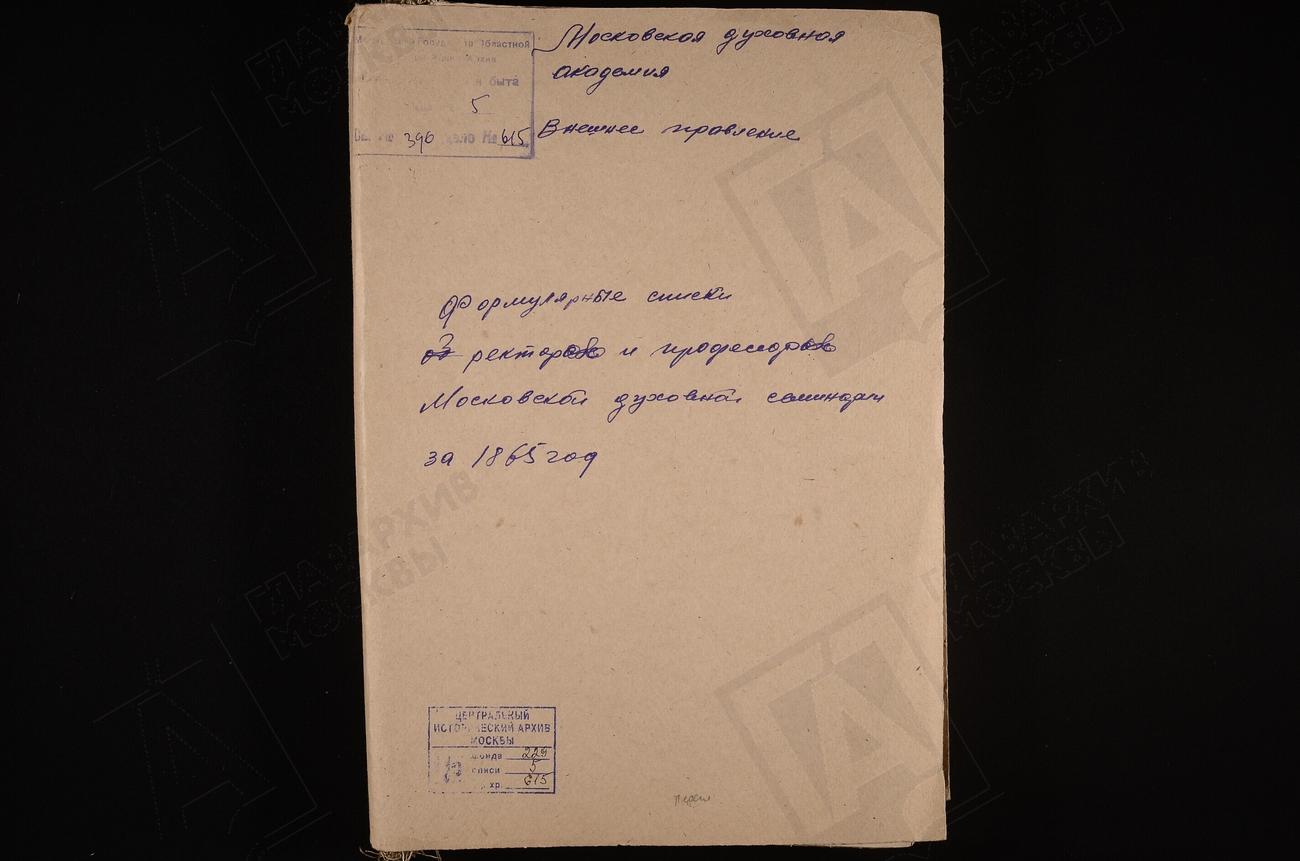 Государ Областной
быта
5
396 дело № 615
Московская духовная
академия
Внешнее правление
Формулярные списки
ректоров и профессоров
Московской духовной семинарии
за 1865 год
ЦЕНТРАЛЬНЫЙ
ИСТОРИЧЕСКИЙ АРХИВ
МОСКВЫ
фонда 229
описи 5
хр. 615
ГЛАВАРХИВ
МОСКВЫ